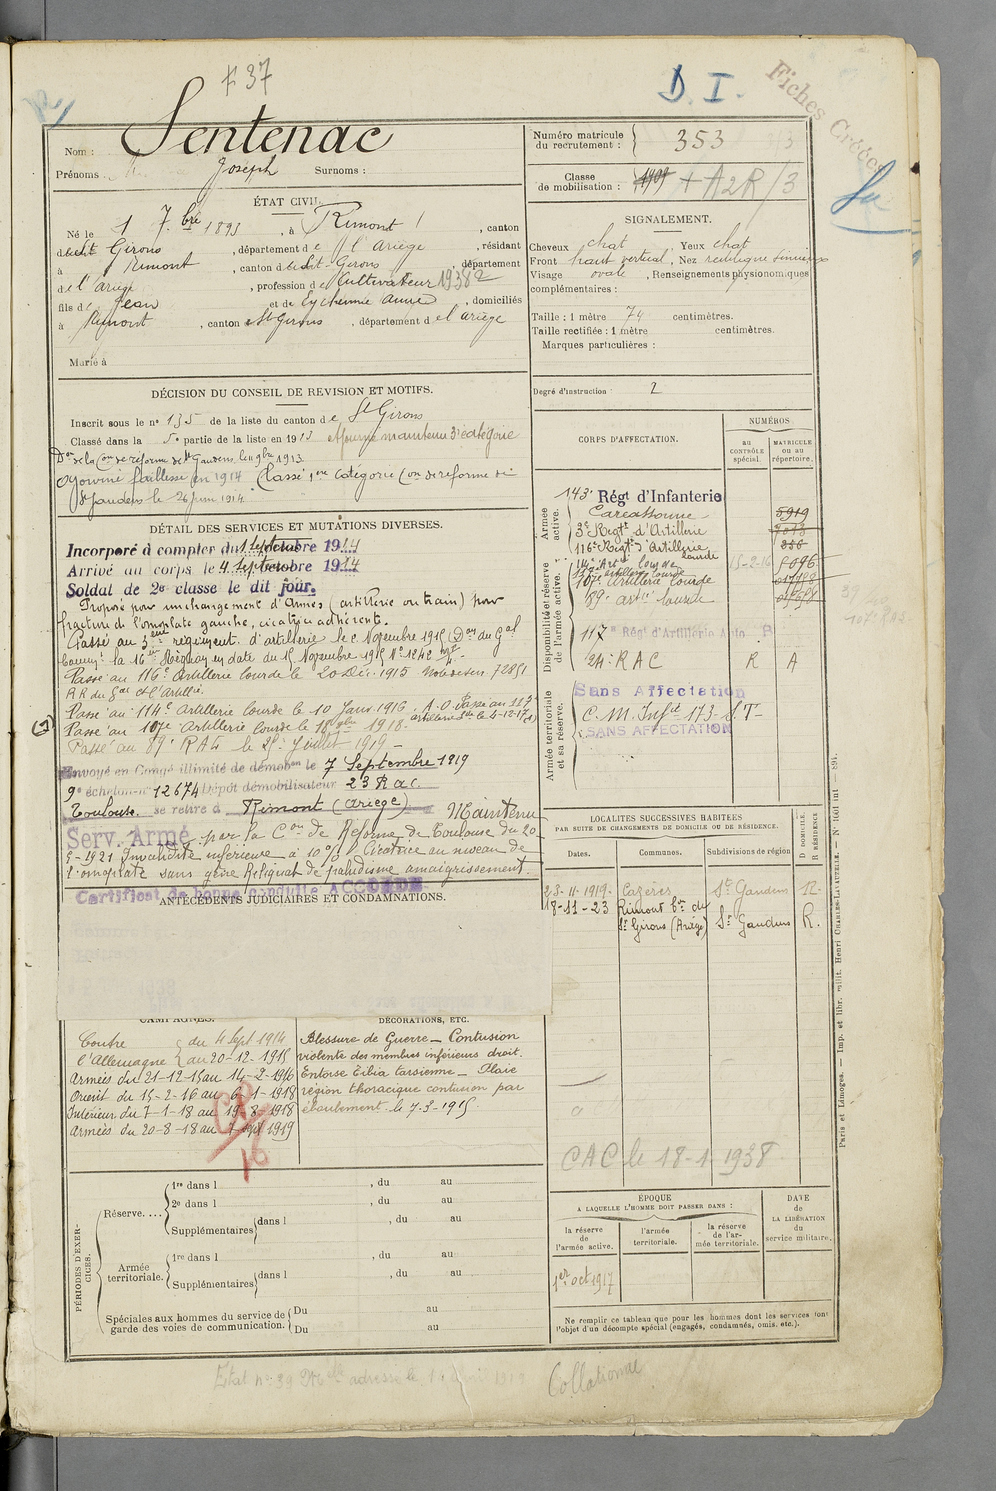 F 37
D. I.
Fiches Créées
Nom : Sentenac
Prénoms : Joseph Surnoms :
Numéro matricule du recrutement : 353
Classe de mobilisation : A2R / 3
ÉTAT CIVIL.
Né le 1 7.bre 1893, à Rimont, canton
de St Girons, département de l'Ariège, résidant
à Rimont, canton de St-Girons, département
de l'Ariège, profession de Cultivateur 19382
fils de Jean et de Eychenne Anne, domiciliés
à Rimont, canton St Girons, département de l'Ariège
Marié à
SIGNALEMENT.
Cheveux chat Yeux chat
Front haut vertical, Nez rectiligne
Visage ovale, Renseignements physionomiques
complémentaires :
Taille : 1 mètre 74 centimètres.
Taille rectifiée : 1 mètre centimètres.
Marques particulières :
Degré d'instruction : 2
DÉCISION DU CONSEIL DE REVISION ET MOTIFS.
Inscrit sous le no 135 de la liste du canton de St Girons
Classé dans la 5e partie de la liste en 1913 Ajourné maintenu 3e catégorie
Don de la Con de réforme de St Gaudens le 11 9bre 1913.
Ajourné faiblesse en 1914 Classé 1ere catégorie Con de réforme de
St Gaudens le 26 juin 1914.
DÉTAIL DES SERVICES ET MUTATIONS DIVERSES.
Incorporé à compter du 1 septembre 1914
Arrivé au corps le 4 septembre 1914
Soldat de 2e classe le dit jour.
Proposé pour un changement d'Armes (artillerie ou train) pour
fracture de l'omoplate gauche, cicatrice adhérente.
Passé au 3eme régiment d'artillerie le 2 Novembre 1915 (Don du Gal
Commt la 16e Région en date du 15 Novembre 1915 No 1242
Passé au 116e Artillerie lourde le 20 Déc. 1915 Note de serv. 72851
Passé au 114e Artillerie lourde le 10 Janv. 1916. A.O. Passé au 117e
artillerie lde le 4-12-17
Passé au 107e Artillerie lourde le 1918
Passé au 89e RAL le 25 Juillet 1919 -
Envoyé en Congé illimité de démobon le 7 Septembre 1919
9e échelon no 12674 Dépôt démobilisateur 23 Rac.
Toulouse. se retire à Rimont (Ariège) Maintenu
Serv. Armé par la Con de Réforme de Toulouse du 20-
5-1921 Invalidité inférieure à 10% Cicatrice au niveau de
l'omoplate sans gêne Reliquat de paludisme amaigrissement.
Certificat de bonne conduite ACCORDÉ
ANTÉCÉDENTS JUDICIAIRES ET CONDAMNATIONS.
CORPS D'AFFECTATION.
NUMÉROS
au CONTRÔLE spécial.
MATRICULE ou au répertoire.
Armée active.
143e Régt d'Infanterie
Carcassonne 5919
3e Régt d'Artillerie 7013
116e Régt d'Artillerie lourde 336
Disponibilité et réserve de l'armée active.
114e Art lourde 15-2-16 5096
107e Artillerie lourde
89e artie lourde
117e Régt d'Artillerie Auto
24e R A C R A
Armée territoriale et sa réserve.
Sans Affectation
C. M. Infie 173 - S.T-
SANS AFFECTATION
LOCALITÉS SUCCESSIVES HABITÉES
PAR SUITE DE CHANGEMENTS DE DOMICILE OU DE RÉSIDENCE.
Dates. Communes. Subdivisions de région D DOMICILE. R RÉSIDENCE
23-11-1919. Cazères St Gaudens R.
18-11-23 Rimont Con de St Girons (Ariège) St Gaudens R.
CAMPAGNES.
Contre l'Allemagne du 4 Sept 1914
au 20-12-1915
Armées du 21-12-15 au 14-2-1916
Orient du 15-2-16 au 6-1-1918
Intérieur du 7-1-18 au 19-8-1918
Armées du 20-8-18 au 7 sept 1919
DÉCORATIONS, ETC.
Blessure de Guerre - Contusion
violente des membres inférieurs droit.
Entorse tibia tarsienne - Plaie
région thoracique contusion par
éboulement le 7-3-1915.
CAC le 18-1 1938
PÉRIODES D'EXERCICES.
Réserve....
1re dans l , du au
2e dans l , du au
Supplémentaires dans l , du au
Armée territoriale.
1re dans l , du au
Supplémentaires dans l , du au
Spéciales aux hommes du service de garde des voies de communication.
Du au
Du au
ÉPOQUE
A LAQUELLE L'HOMME DOIT PASSER DANS :
la réserve de l'armée active.
l'armée territoriale.
la réserve de l'armée territoriale.
DATE de LA LIBÉRATION du service militaire.
1er oct 1917
Ne remplir ce tableau que pour les hommes dont les services font
l'objet d'un décompte spécial (engagés, condamnés, omis, etc.).
Paris et Limoges. — Imp. et libr. milit. Henri CHARLES-LAVAUZELLE.
Collationné